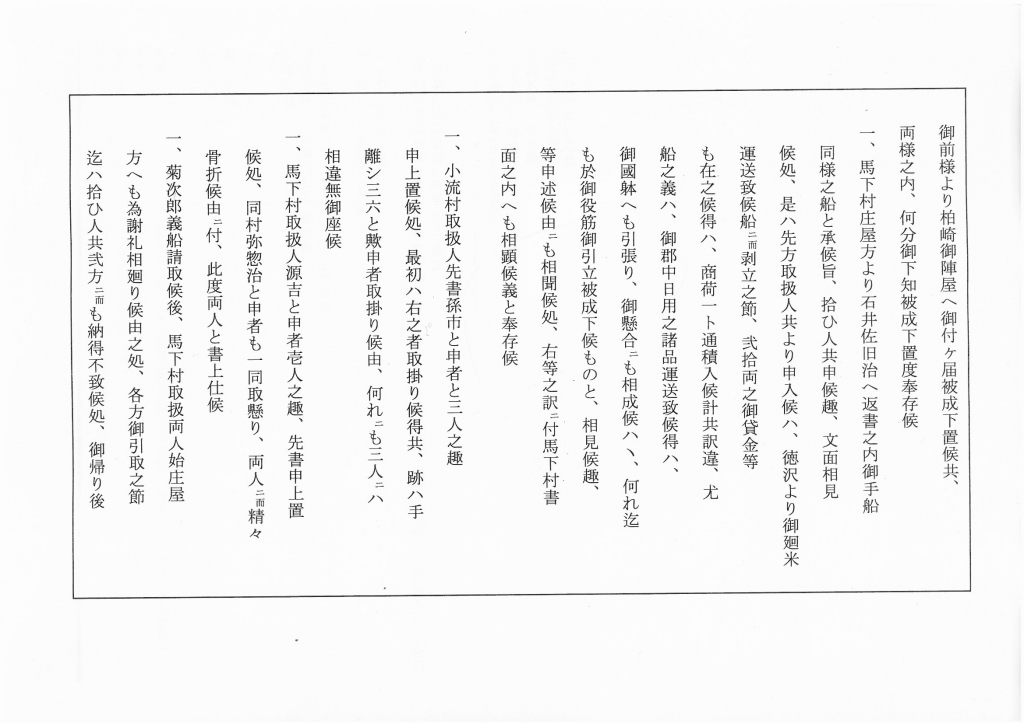 御前様より柏崎御陣屋へ御付ヶ届被成下置候共、
両様之内、何分御下知被成下置度奉存候
一、馬下村庄屋方より石井佐旧治へ返書之内御手船
同様之船と承候旨、拾ひ人共申候趣、文面相見
候処、是ハ先方取扱人共より申入候ハ、徳沢より御廻米
運送致候船ニ而剥立之節、弐拾両之御貸金等
も在之候得ハ、商荷一ト通積入候計共訳違、尤
船之義ハ、御郡中日用之諸品運送致候得ハ、
御國躰へも引張り、御懸合ニも相成候ハヽ、何れ迄
も於御役筋御引立被成下候ものと、相見候趣、
等申述候由ニも相聞候処、右等之訳ニ付馬下村書
面之内へも相顕候義と奉存候
一、小流村取扱人先書孫市と申者と三人之趣
申上置候処、最初ハ右之者取掛り候得共、跡ハ手
離シ三六と歟申者取掛り候由、何れニも三人ニハ
相違無御座候
一、馬下村取扱人源吉と申者壱人之趣、先書申上置
候処、同村弥惣治と申者も一同取懸り、両人ニ而精々
骨折候由ニ付、此度両人と書上仕候
一、菊次郎義船請取候後、馬下村取扱両人始庄屋
方へも為謝礼相廻り候由之処、各方御引取之節
迄ハ拾ひ人共弐方ニ而も納得不致候処、御帰り後